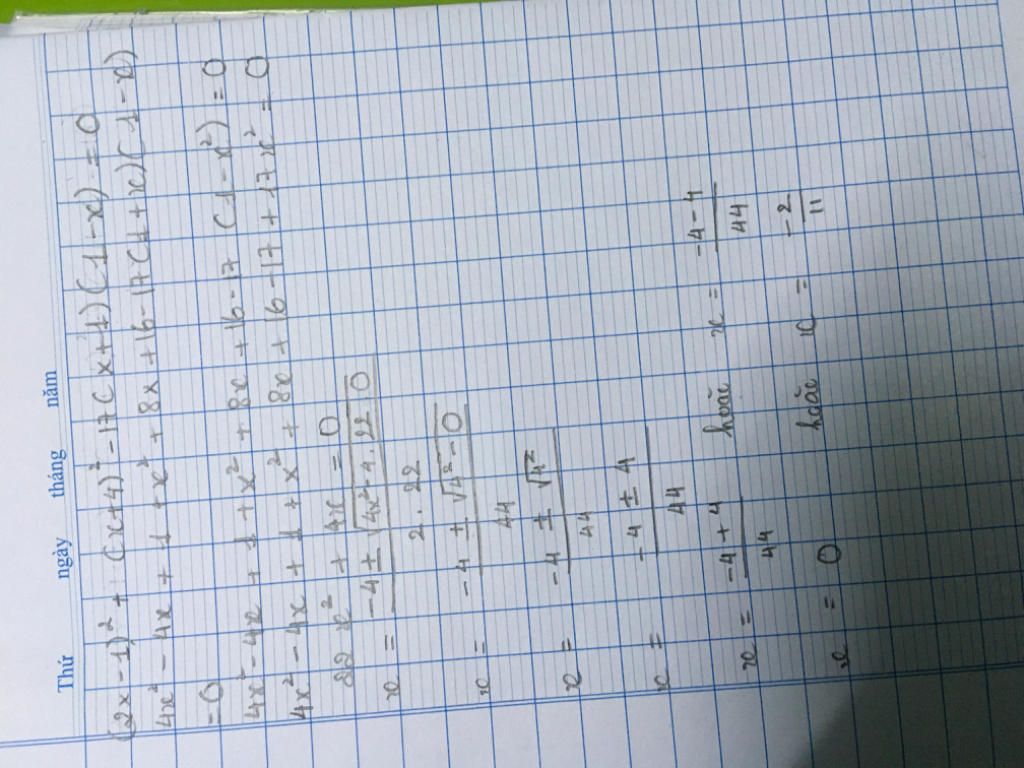 Thứ ngày tháng năm
(2x-1)² + (x+4)² - 17(x+1)(1-x) = 0
4x² - 4x + 1 + x² + 8x + 16 - 17(1+x)(1-x)
= 0
4x² - 4x + 1 + x² + 8x + 16 - 17(1-x²) = 0
4x² - 4x + 1 + x² + 8x + 16 - 17 + 17x² = 0
22x² + 4x = 0
x = (-4 ± √(4² - 4.22.0)) / (2.22)
x = (-4 ± √(4² - 0)) / 44
x = (-4 ± √4²) / 44
x = (-4 ± 4) / 44
x = (-4+4) / 44 hoăc x = (-4-4) / 44
x = 0 hoăc x = -2/11